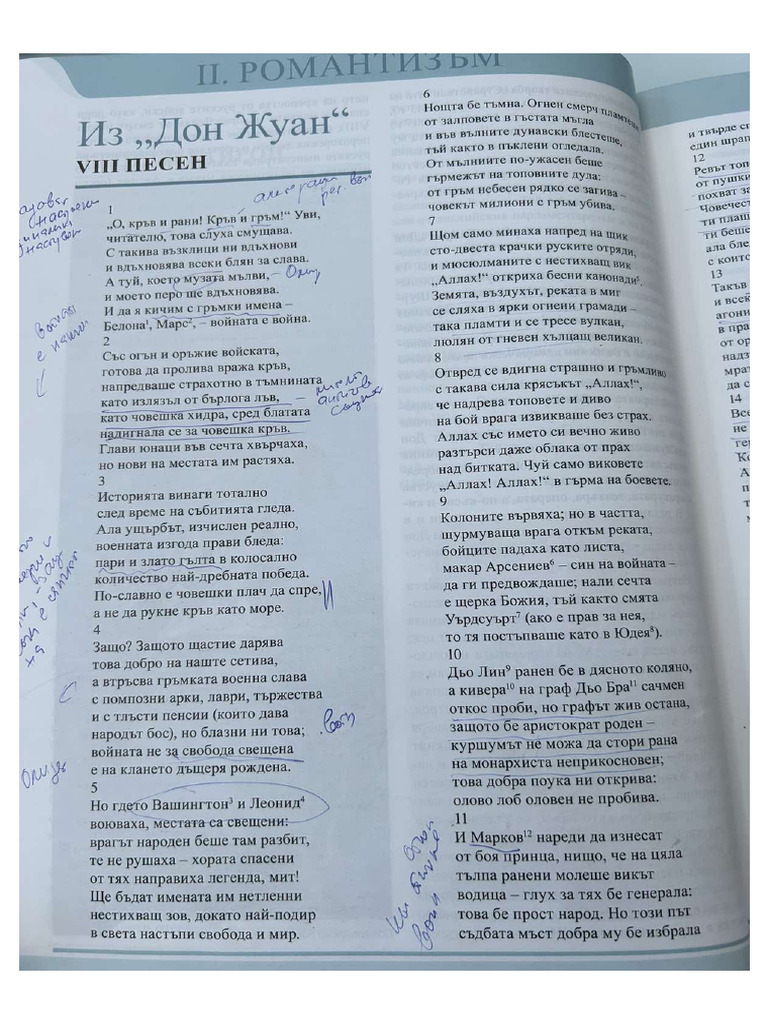 II. РОМАНТИЗЪМ
Из „Дон Жуан“
VIII ПЕСЕН
1
„О, кръв и рани! Кръв и гръм!“ Уви,
читателю, това слуха смущава.
С такива възклици ни вдъхнови
и вдъхновява всеки блян за слава.
А туй, което музата мълви,
и моето перо ще вдъхновява.
И да я кичим с гръмки имена –
Белона¹, Марс², – войната е война.
2
Със огън и оръжие войската,
готова да пролива вража кръв,
напредваше страхотно в тъмнината
като излязъл от бърлога лъв,
като човешка хидра, сред блатата
надигнала се за човешка кръв.
Глави юнаци във сечта хвърчаха,
но нови на местата им растяха.
3
Историята винаги тотално
след време на събитията гледа.
Ала ущърбът, изчислен реално,
военната изгода прави бледа:
пари и злато гълта в колосално
количество най-дребната победа.
По-славно е човешки плач да спре,
а не да рукне кръв като море.
4
Защо? Защото щастие дарява
това добро на наште сетива,
а втръсва гръмката военна слава
с помпозни арки, лаври, тържества
и с тлъсти пенсии (които дава
народът бос), но блазни ни това;
войната не за свобода свещена
е на клането дъщеря рождена.
5
Но гдето Вашингтон³ и Леонид⁴
воюваха, местата са свещени:
врагът народен беше там разбит,
те не рушаха – хората спасени
от тях направиха легенда, мит!
Ще бъдат имената им нетленни
нестихващ зов, докато най-подир
в света настъпи свобода и мир.
6
Нощта бе тъмна. Огнен смерч пламтеше
от залповете в гъстата мъгла
и във вълните дунавски блестеше,
тъй както в пъклени огледала.
От мълниите по-ужасен беше
гърмежът на топовните дула:
от гръм небесен рядко се загива –
човекът милиони с гръм убива.
7
Щом само минаха напред на щик
сто-двеста крачки руските отряди,
и мюсюлманите с нестихващ вик
„Аллах!“ откриха бесни канонади⁵.
Земята, въздухът, реката в миг
се сляха в ярки огнени грамади –
така пламти и се тресе вулкан,
люлян от гневен хълцащ великан.
8
Отвред се вдигна страшно и гръмливо
с такава сила крясъкът „Аллах!“,
че надрева топовете и диво
на бой врага извикваше без страх.
Аллах със името си вечно живо
разтърси даже облака от прах
над битката. Чуй само виковете
„Аллах! Аллах!“ в гърма на боевете.
9
Колоните вървяха; но в частта,
щурмуваща врага откъм реката,
бойците падаха като листа,
макар Арсениев⁶ – син на войната –
да ги предвождаше; нали сечта
е щерка Божия, тъй както смята
Уърдсуърт⁷ (ако е прав за нея,
то тя постъпваше като в Юдея⁸).
10
Дьо Лин⁹ ранен бе в дясното коляно,
а кивера¹⁰ на граф Дьо Бра¹¹ сачмен
откос проби, но графът жив остана,
защото бе аристократ роден –
куршумът не можа да стори рана
на монархиста неприкосновен;
това добра поука ни открива:
олово лоб оловен не пробива.
11
И Марков¹² нареди да изнесат
от боя принца, нищо, че на цяла
тълпа ранени молеше викът
водица – глух за тях бе генерала:
това бе прост народ. Но този път
съдбата мъст добра му бе избрала
и твърде
един шрап
12
Ревът топо
от пушки
похват за
Човечест
ти плащ
ти беше
ала бле
с които
13
Такъв
и всек
агони
в пра
от ор
надз
мрат
да с
14
Все
не
ге